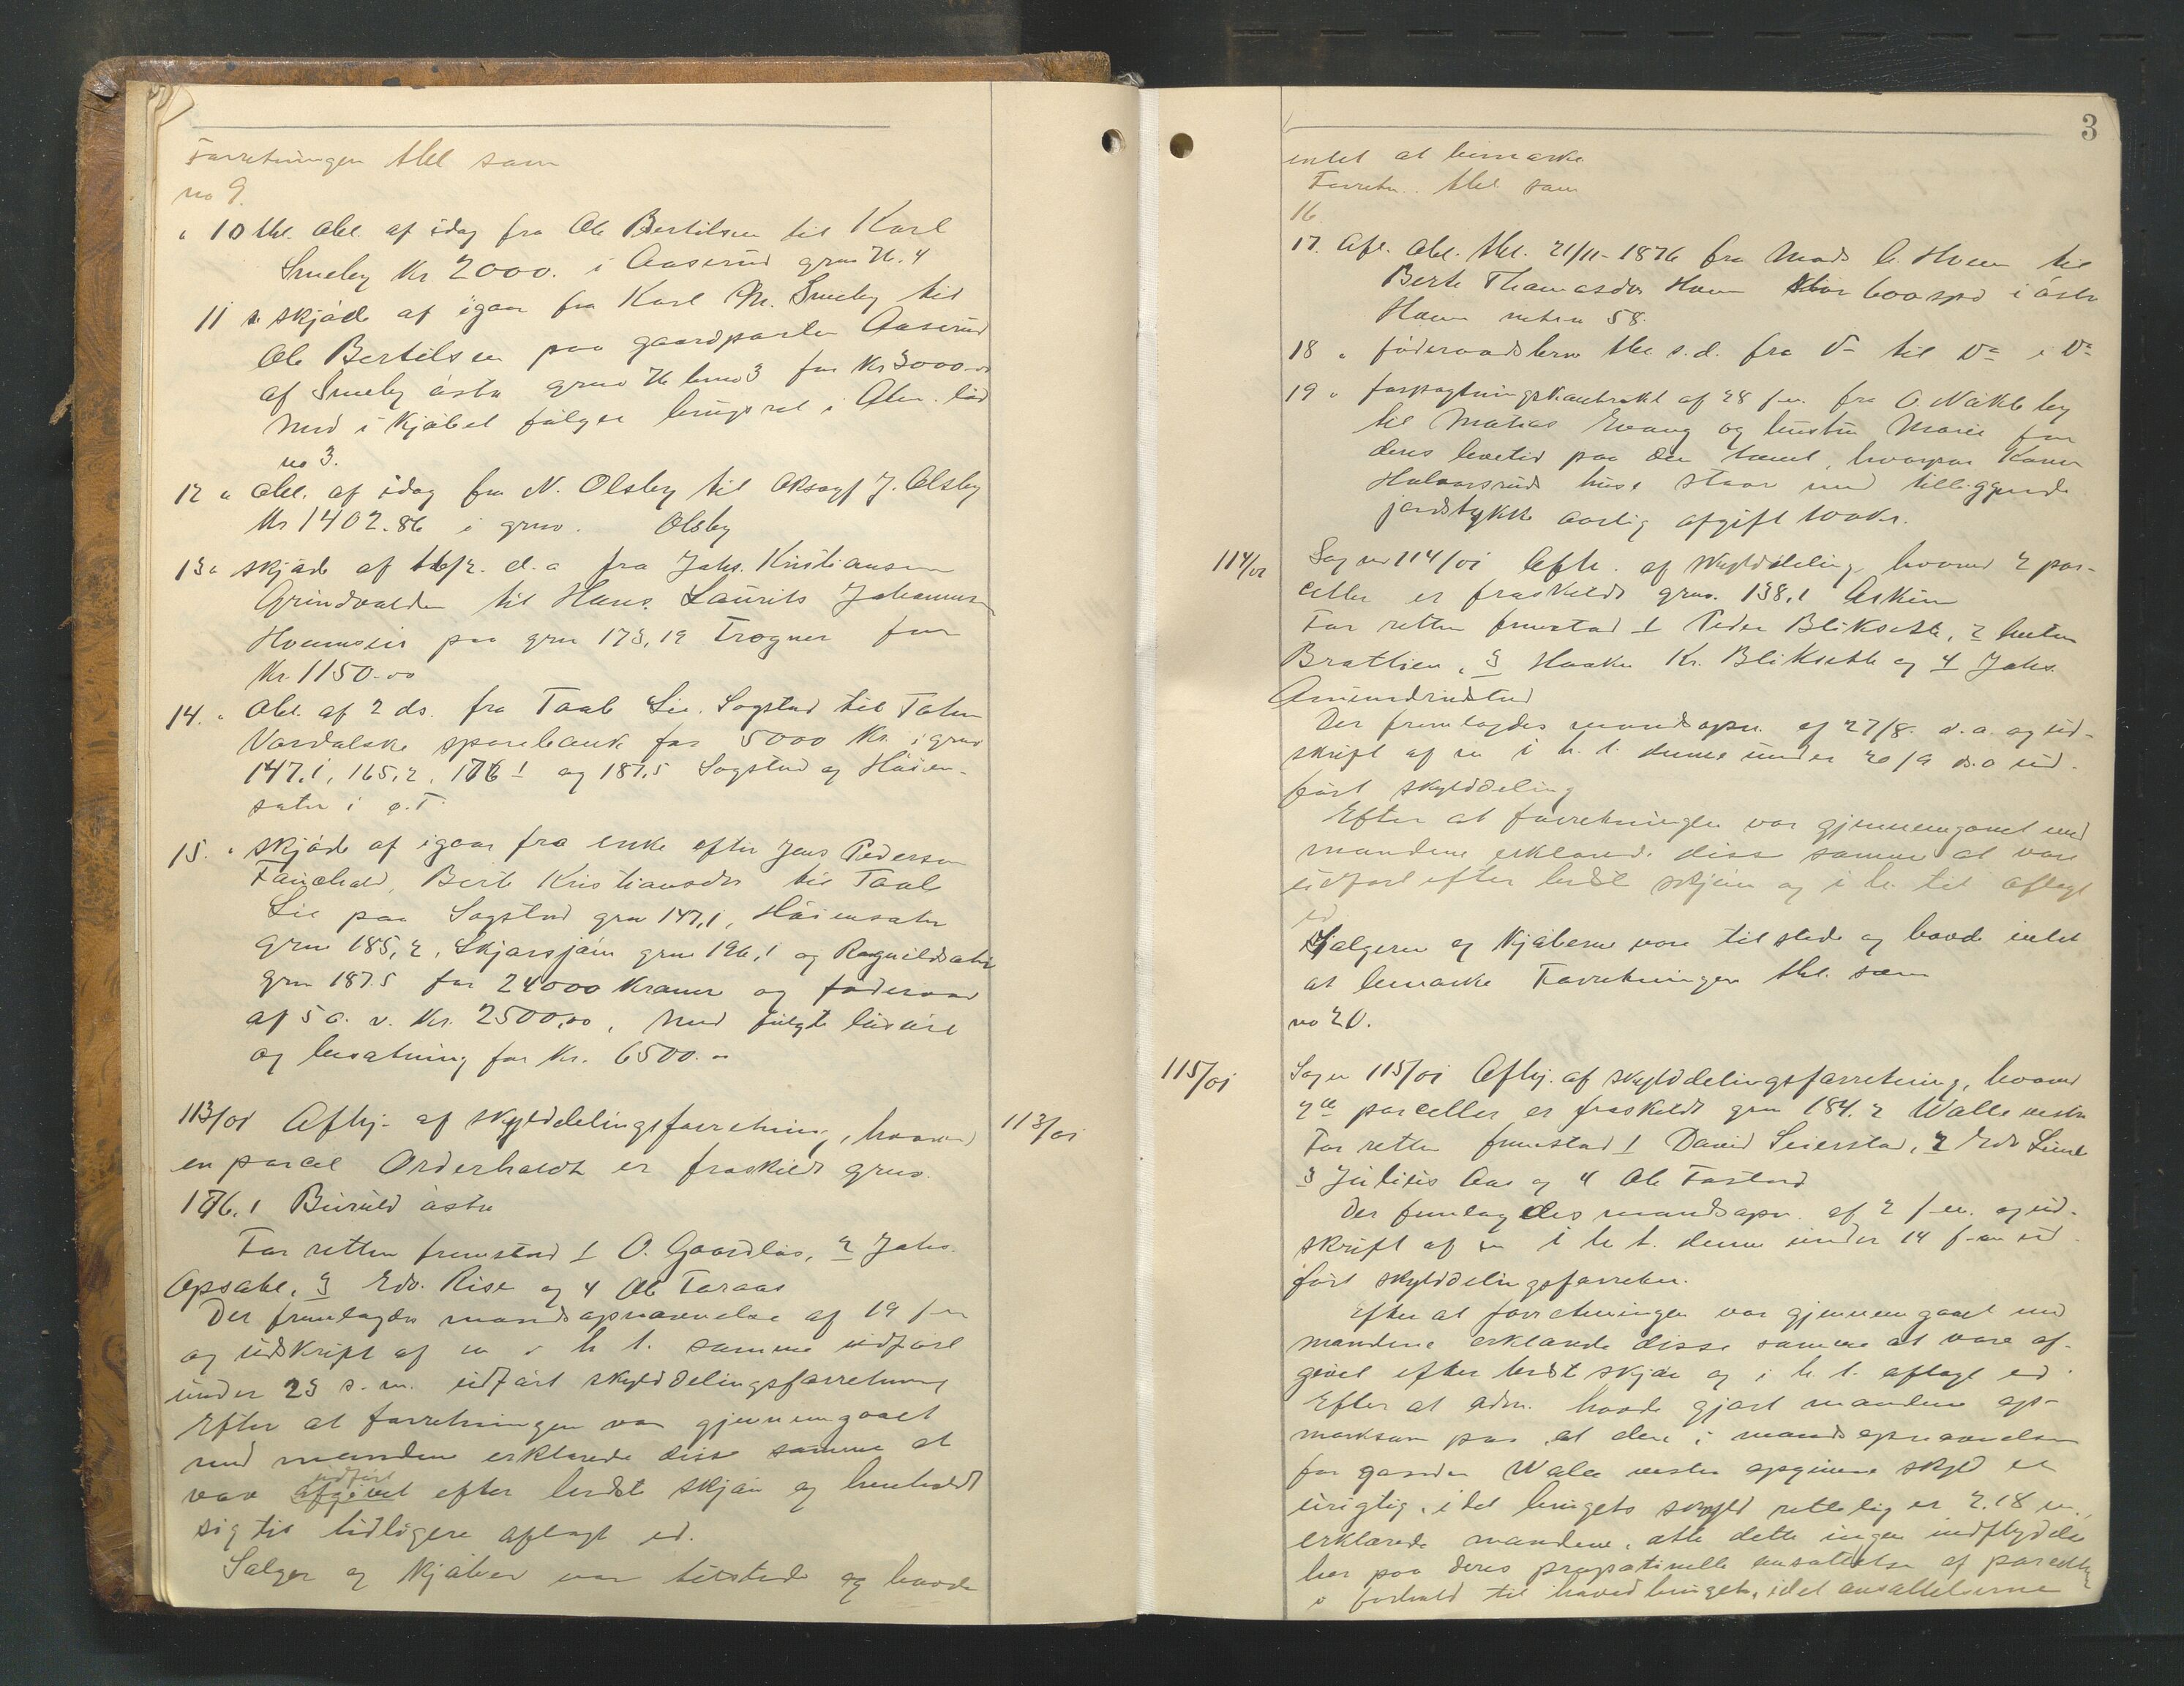 Forretningen thl som
no 9.
" 10 thl. obl. af idag fra Ole Bertilsen til Karl
Smeby Kr 2000. i Aaserud grno 76.4
11 " skjöde af igaar fra Karl M. Smeby til
Ole Bertilsen paa gaardparten Aaserud
af Smeby östre grno 76 bno 3 for Kr 3000-oo
Med i kjöbet fölger brugsret i Alm. lod
no 3.
12 " obl. af idag fra N. Olsby til J. Olsby
Kr 1402.86 i grno. Olsby
13 " skjöde af 16/2. d.a fra Johs. Kristiansen
Grindvolden til Hans Laurits Johannesen
paa grno 173,19 Trogner for
Kr. 1150-oo
14. " obl. af 2 ds. fra Taale Lie. Sogstad til Toten
Vardalske sparebank for 5000 Kr. i grno
147,1, 165,2, 176.1 og 187,5 Sogstad og Höien-
sater i ø.T.
15. " skjöde af igaar fra enke efter Jens Pederson
Berte Kristiansdr til Taale
Lie paa Sogstad grno 147,1, Höiensater
grno 185,2, grno 196,1 og Ragnildsater
grno 187.5 for 24000 Kroner og föderaad
af 5 a. v. Kr. 2500,oo, Med fulgte lösöre
og besatning for Kr. 6500.-
113/01 Afhj. af skylddelingsforretning, hvorved 113/01
en parcel Orderholdt er fraskildt grno.
176.1 Buruld östre
For retten fremstod 1 O. Gaardlös, 2 Johs.
Opsahl, 3 Edv. Rise og 4 Ole Foraas
Der fremlagdes mandsopnavnelse af 19 f-m
og udskrift af en i h t. samme udfört
under 23 s. m. udfört skylddelingsforretning
Efter at forretningen var gjennemgaaet
med mandene erklarede disse samme at
udfört
vare afgivet efter bedste skjön og henholdt
sig til tidligere aflagt ed.
Salger og kjöber var tilstede og havde
3
intet at bemarke
Forretn. thl som
16.
17. Afl. obl. thl. 21/11-1876 fra Mads C. Hoem til
Berte Thomasdr Hoem stor 600 spd i östre
Hoem matr.no 58.
18 " föderaadsbrev thl. s.d. fra Do til Do i Do
19 " forpagtningskontrakt af 28 f.m. fra O. Nökleby
til Matias Evang og hustru Marie for
deres levetid paa den tomt, hvorpaa Karen
Halvorsruds huse staar med tilliggende
jordstykke aarlig afgift
114/01 Sag no 114/01 Afh. af skylddeling hvorved 2 par-
celler er fraskildt grno. 138,1 Askim
For retten fremstod 1 Peder Bliksetle, 2
Bratlien, 3 Haaken Kr. Bliksetle og 4 Johs.
Amundrudstad
Der fremlagdes mandsopn. af 27/8. d.a. og ud-
skrift af en i h. t. denne under 20/9 d.a ud-
fört skylddeling
Efter at forretningen var gjennemgaaet med
mandene erklarede disse samme at vare
udfört efter bedste skjön og i h. til aflagt
ed
Salgeren og kjöberne vare tilstede og havde intet
at bemarke Forretningen thl. som
no 20.
115/01 Sag no 115/01 Afhj. af skylddelingsforretning, hvorved
2de parceller er fraskildt grno 184.2 Walle vestre
For retten fremstod 1 David Seierstad, 2 Edv Lund
3 Julius Aas og 4 Ole Fostad
Der fremlagdes mandsopn. af 2 f-m. og ud-
skrift af en i h t. denne under 14 f-m ud-
fört skylddelingsforretn.
Efter at forretningen var gjennemgaaet med
mandene erklarede disse samme at vare af-
givet efter bedste skjön og i h. t. aflagt ed.
Efter at adm. havde gjort mandene op-
marksom paa, at den i mandsopnavnelsen
for gaarden Walle vestre opgivne skyld er
urigtig, idet brugets skyld rettelig er 2.18 m,
erklarede mandene, at dette ingen indflydelse
har paa deres propotionelle ansattelse af parcellen
i forhold til hovedbruget, idet ansattelserne